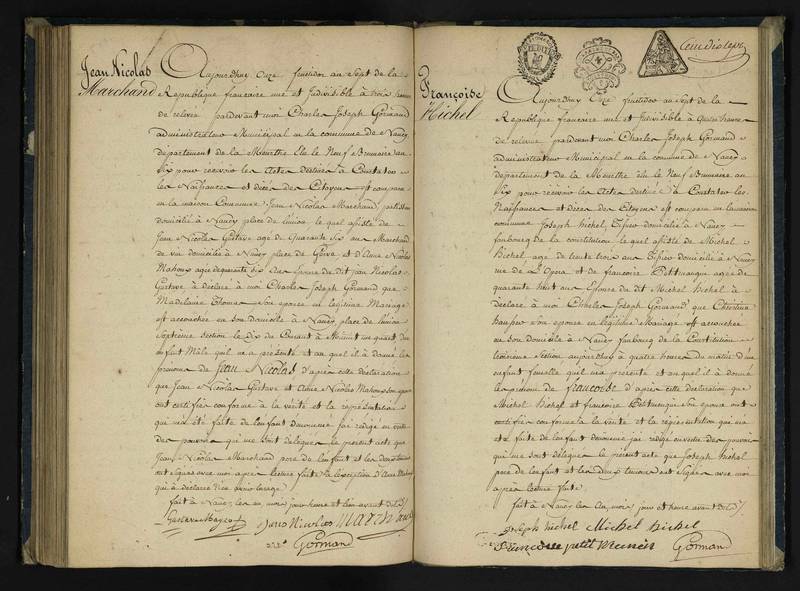 Jean Nicolas
Marchand
Aujourdhuy Onze fructidor an Sept de la
Republique francaise une et Indivisible à trois heures
de relevée pardevant moi Charles Joseph Gormand
administrateur Municipal en la commune de Nancy
departement de la Meurthe Elu le Neuf Brumaire an
Six pour recevoir les Actes destinés à Constater
les Naissances et décés des Citoyens est comparu
en la maison Commune Jean Nicolas Marchand,
domicilié à Nancy place de lunion le quel assisté de
Jean Nicolas Gustave agé de Quarante Six ans Marchand
de vin domicilié à Nancy place de Grève et d'Anne Nicolas
Mahoux agée de quarante six ans Epouse du dit Jean Nicolas
Gustave, à déclaré à moi Charles Joseph Gormand que
Madelaine Thomas Son epouse en legitime Mariage
est accouchée en son domicile à Nancy place de lunion
Septieme Section le Dix du Courant à Minuit un quart d'un
enfant Mâle quil m'a présenté et au quel il à donné les
prenoms de Jean Nicolas d'après cette declaration
que Jean Nicolas Gustave et Anne Nicolas Mahoux son epouse
ont certifiée conforme à la vérité et la représentation
qui m'a été faite de lenfant denommé jai rédigé en vertu
des pouvoirs qui me sont délégués le présent acte que
Jean Nicolas Marchand pere de lenfant et les deux temoins
ont signés avec moi après lecture faite à lexception d'Anne Mahoux
qui à déclaré n'en avoir lusage
fait à Nancy les an, mois, jour heure et lieu avant dits
Jean Nicolas Marchand
Gormand
Françoise
Hichel
Aujourdhuy Onze fructidor an Sept de la
Republique francaise une et Indivisible à Quatre heures
de relevée pardevant moi Charles Joseph Gormand
administrateur Municipal en la commune de Nancy
departement de la Meurthe élu le Neuf Brumaire an
Six pour recevoir les Actes destinés à Constater les
Naissances et Décés des Citoyens est comparu en la maison
commune Joseph Hichel, domicilié à Nancy
faubourg de la constitution le quel assisté de Michel
Hichel agé de trente trois ans domicilié à Nancy
rue de L'Opera et de francoise Petitmangin agée de
quarante huit ans Epouse du dit Michel Hichel à
déclaré à moi Charles Joseph Gormand, que Christine
Son epouse en légitime Mariage est accouchée
en son domicile à Nancy faubourg de la Constitution
troisieme Section aujourdhuy à quatre heures du matin d'un
enfant femelle quil m'a présenté et au quel il à donné
le prenom de francoise d'après cette declaration que
Michel Hichel et francoise Petitmangin Son epouse ont
certifiée conforme à la verité et la représentation qui m'a
été faite de lenfant denommé jai rédigé en vertu des pouvoirs
qui me sont délégués le présent acte que Joseph Hichel
pere de lenfant et les Deux temoins ont Signés avec moi
après lecture faite
fait à Nancy les an, mois, jour et heure avant dits
joseph hichel Michel hichel
Gormand